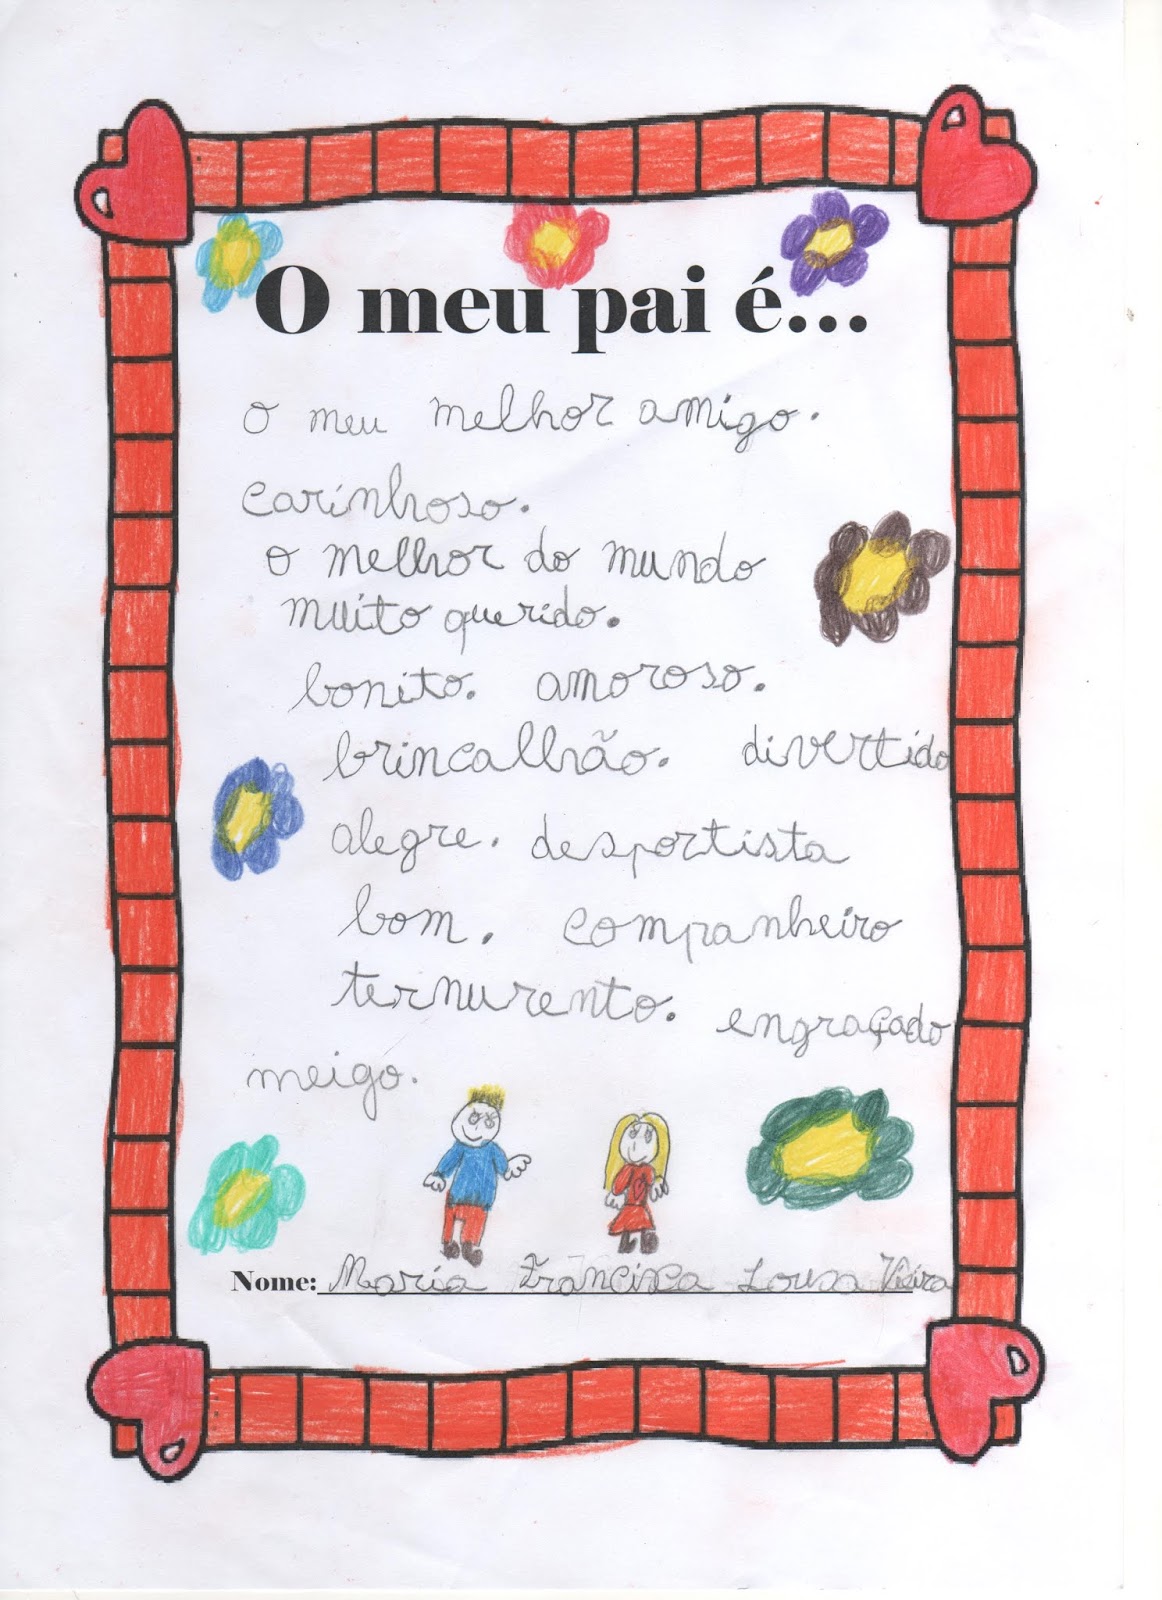 O meu pai é...
O meu melhor amigo.
carinhoso.
o melhor do mundo
muito querido.
bonito. amoroso.
brincalhão. divertido
alegre. desportista
bom. companheiro
ternurento. engraçado
meigo.
Nome: Maria Francisca Lousa Vieira